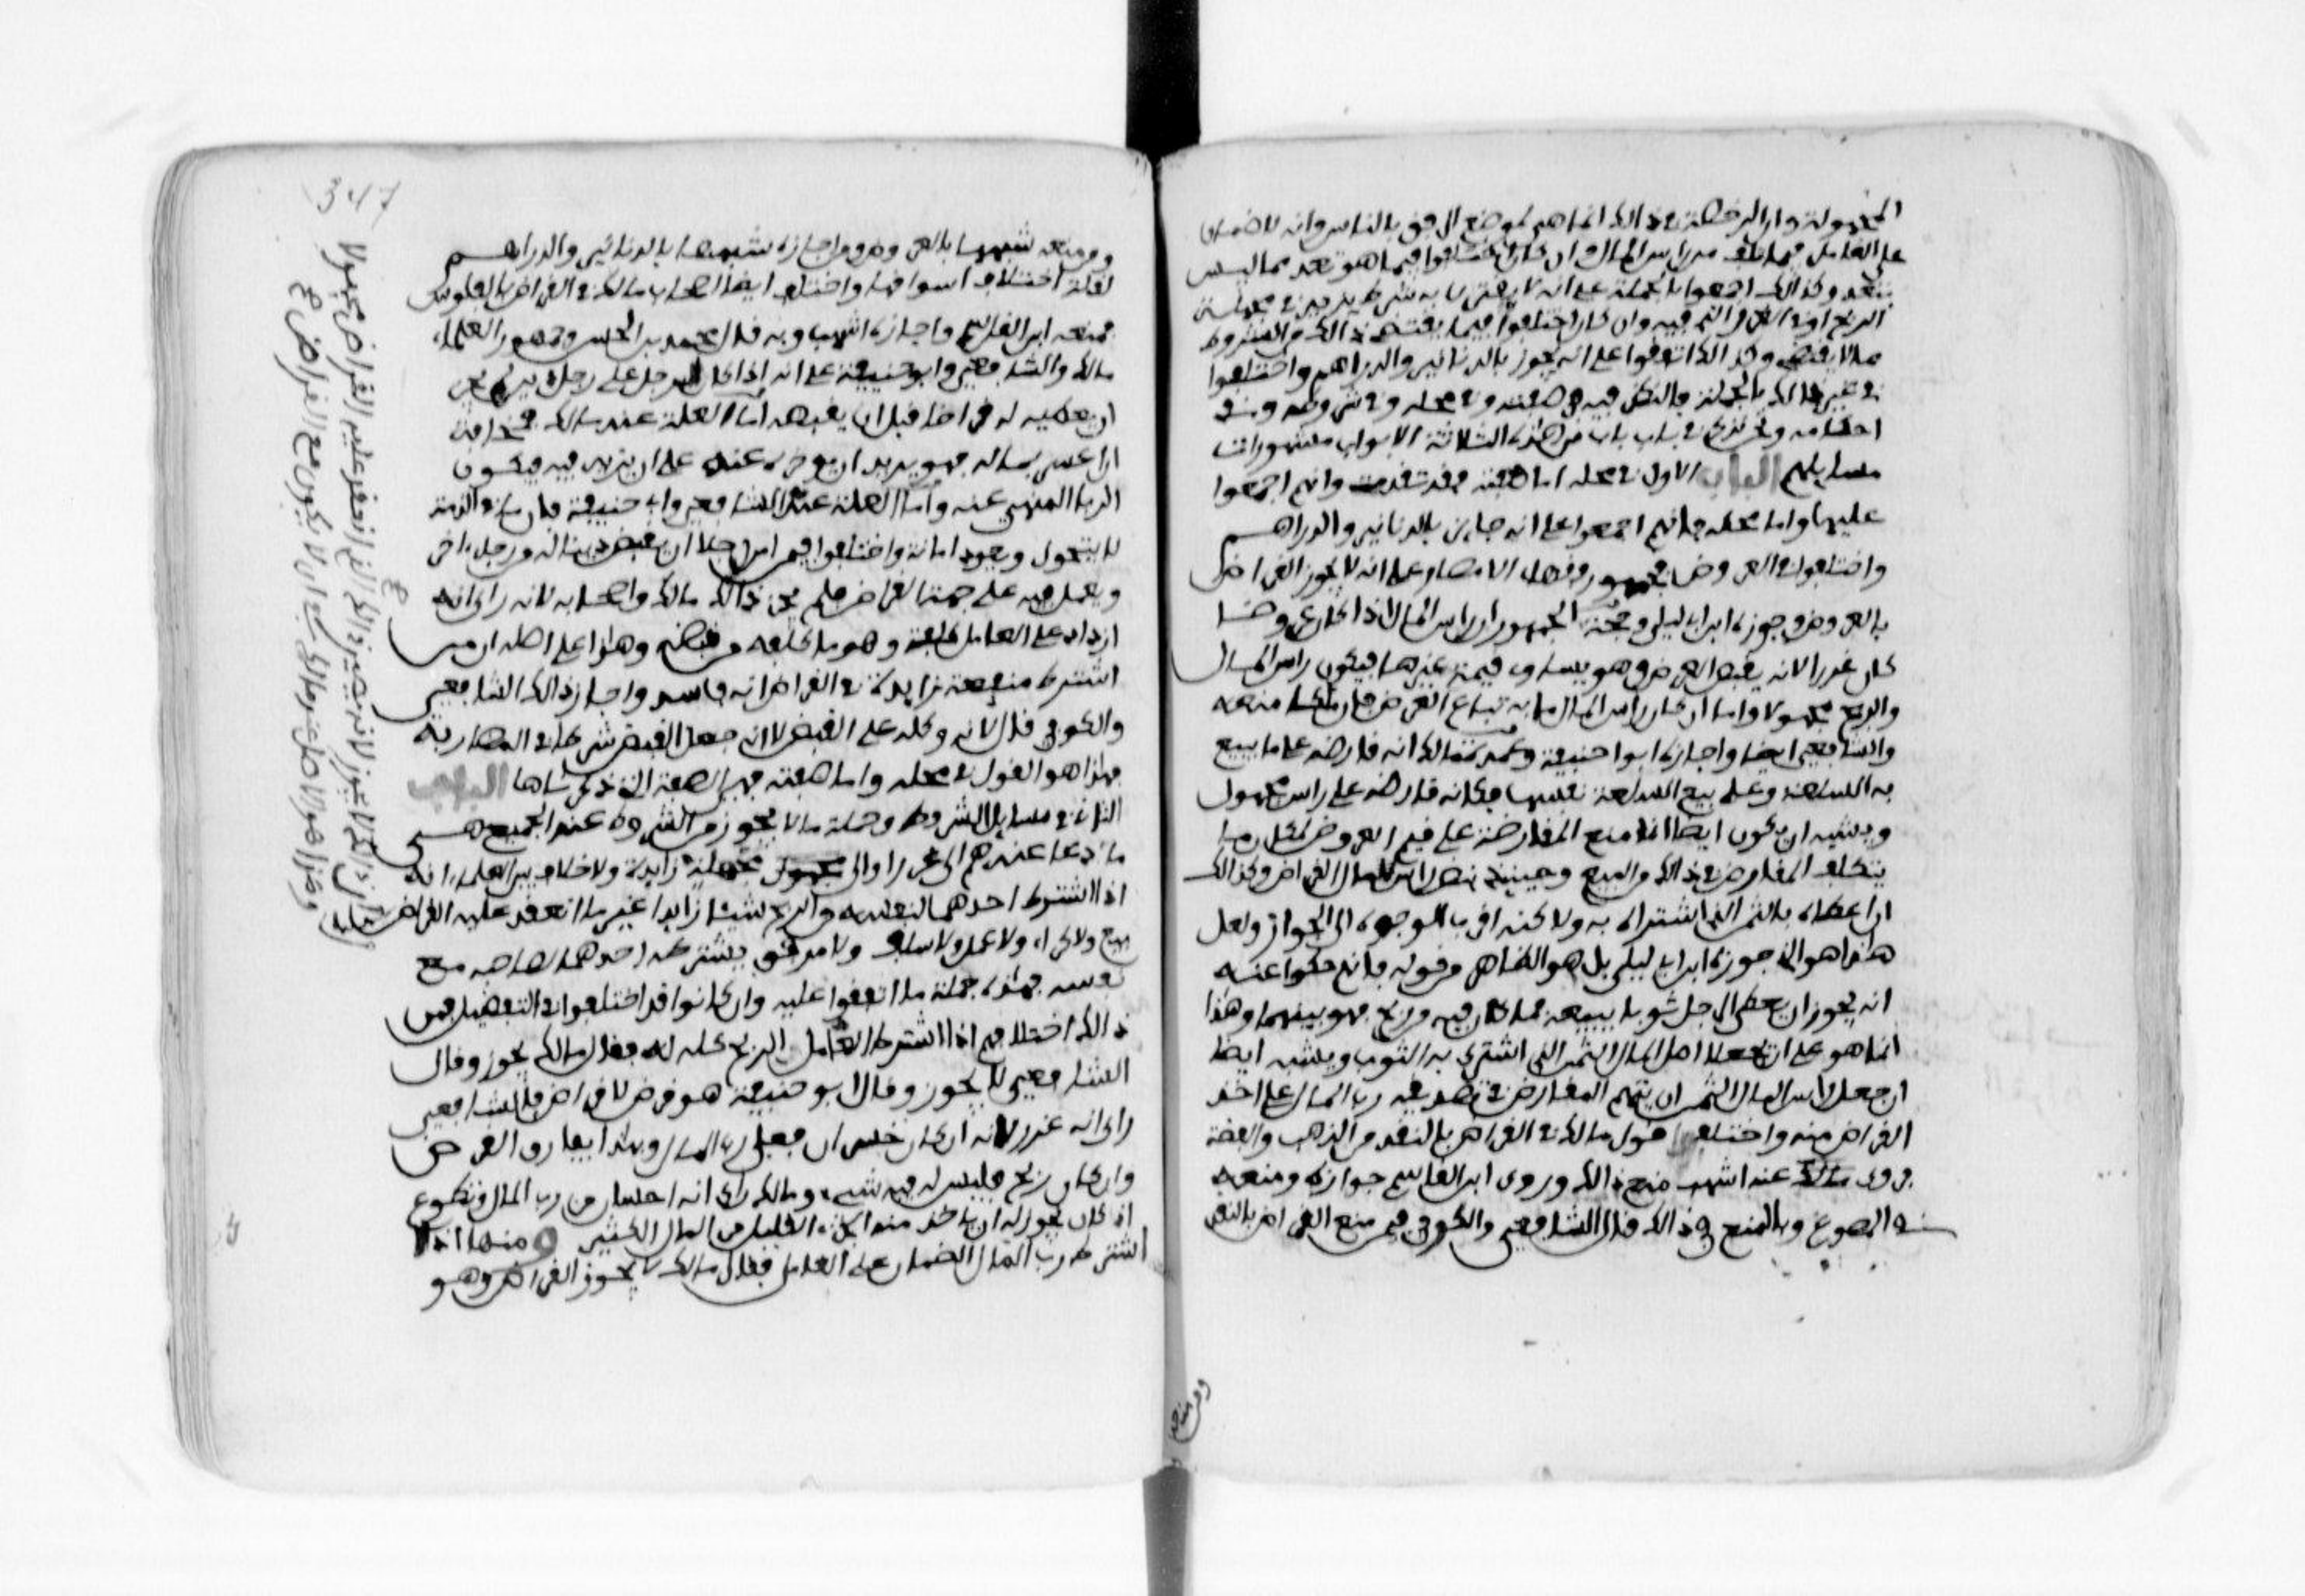 المجهولة وان الرخصة في ذالك انما هي لموضع الرفق بالناس وانه لا ضمان
على العامل فيما تلف من راس المال ان كان اختلفوا فيما هو تعد مما ليس
بتعد وكذالك اجمعوا بالجملة على انه لا يقترن به شرط يزيد في مجهلة
الربح او في الغرر الذي فيه وان كان اختلفوا فيما يقتضي ذالك من الشروط
مما لا يقتضي وكذالك اتفقوا على انه يجوز بالدنانير والدراهم واختلفوا
في غير ذالك بالجملة والنظر فيه في صفته وفي محله وفي شروطه وفي
احكامه ونحن نذكر في باب باب من هذه الثلاثة الابواب مشهورات
مسايلهم الباب الاول في محله اما صفته فقد تقدمت وانهم اجمعوا
عليها واما محله فانهم اجمعوا على انه جايز بالدنانير والدراهم
واختلفوا في العروض فجمهور فقهاء الامصار على انه لا يجوز القراض
بالعروض وجوزه ابن ابي ليلى وحجة الجمهور ان راس المال اذا كان عروضا
كان غررا لانه يقبض العرض وهو يساوي قيمة غيرها فيكون راس المال
والربح مجهولا واما ان كان راس المال ما به تباع العروض فان مالكا منعه
والشافعي ايضا واجازه ابو حنيفة وعمدة مالك انه قارضه على ما يبيع
به السلعة وعلى بيع السلعة نفسها فكانه قارضه على راس مجهول
ويشبه ان يكون ايضا انما منع المقارضة على قيم العروض لمكان ما
يتكلف المقارض في ذالك من البيع وحينيذ ينض راس مال القراض وكذالك
ان اعطاه بالثمن الذي اشتراه به ولاكنه اقرب الوجوه الى الجواز ولعل
هذا هو الذي جوزه ابن ابي ليلى بل هو الظاهر من قوله فانهم حكوا عنه
انه يجوز ان يعطي الرجل ثوبا يبيعه فما كان فيه من ربح فهو بينهما وهذا
انما هو على ان يجعلا اصل المال الثمن الذي اشتري به الثوب ويشبه ايضا
ان جعل راس المال الثمن ان يتهم المقارض في تصديقه رب المال على اخذ
القراض منه واختلف قول مالك في القراض بالنقد من الذهب والفضة
فروى عنه اشهب منع ذالك وروى ابن القاسم جوازه ومنعه
في المصوغ وبالمنع في ذالك قال الشافعي والكوفي فمن منع القراض بالنقر
ومن منعه
شبهها بالعروض ومن اجازه شبهها بالدنانير والدراهم
لقلة اختلاف اسواقها واختلف ايضا اصحاب مالك في القراض بالفلوس
فمنعه ابن القاسم واجازه اشهب وبه قال محمد بن الحسن وجمهور العلماء
مالك والشافعي وابو حنيفة على انه اذا كان لرجل على رجل دين لم يجز
ان يعطيه له قراضا قبل ان يقبضه اما العلة عند مالك فمخافة
ان اعسر بماله فهو يريد ان يؤخره عنه على ان يزيده فيه فيكون
الربا المنهي عنه واما العلة عند الشافعي وابي حنيفة فان ما في الذمة
لا يتحول ويعود امانة واختلفوا فيمن امر رجلا ان يقبض دينا له من رجل اخر
ويعمل فيه على جهة القراض فلم يجز ذالك مالك واصحابه لانه راى انه
ازداد على العامل كلفة وهو ما كلفه من قبضه وهذا على اصله ان من
اشترط منفعة زايدة في القراض انه فاسد واجاز ذالك الشافعي
والكوفي قال لانه وكله على القبض لا انه جعل القبض شرطا في المضاربة
فهذا هو القول في محله واما صفته فهي الصفة التي ذكرناها الباب
الثاني في مسايل الشروط وجملة ما لا يجوز من الشروط عند الجميع هي
ما ادى عندهم الى غرر او الى مجهلة زايدة ولا خلاف بين العلماء انه
اذا اشترط احدهما لنفسه من الربح شيئا زايدا غير ما انعقد عليه القراض
بيع ولا كراء ولا عمل ولا سلف ولا مرفق يشترطه احدهما لصاحبه مع
نفسه فهذه جملة ما اتفقوا عليه وان كانوا قد اختلفوا في التفصيل فمن
ذالك اختلافهم اذا اشترط العامل الربح كله له فقال مالك يجوز وقال
الشافعي لا يجوز وقال ابو حنيفة هو قرض لا قراض فالشافعي
راى انه غرر لانه ان كان خسران فعلى رب المال وبهذا يفارق القرض
وان كان ربح فليس له فيه شيء ومالك راى انه احسان من رب المال وتطوع
اذ كان يجوز له ان ياخذ منه الجزء القليل من المال الكثير ومنها اذا
اشترط رب المال الضمان على العامل فقال مالك لا يجوز القراض وهو
ان ذالك لا يجوز لانه يصير ذالك الذي انعقد عليه القراض مجهولا
وهذا هو الاصل عند مالك في ان لا يكون مع القراض
347